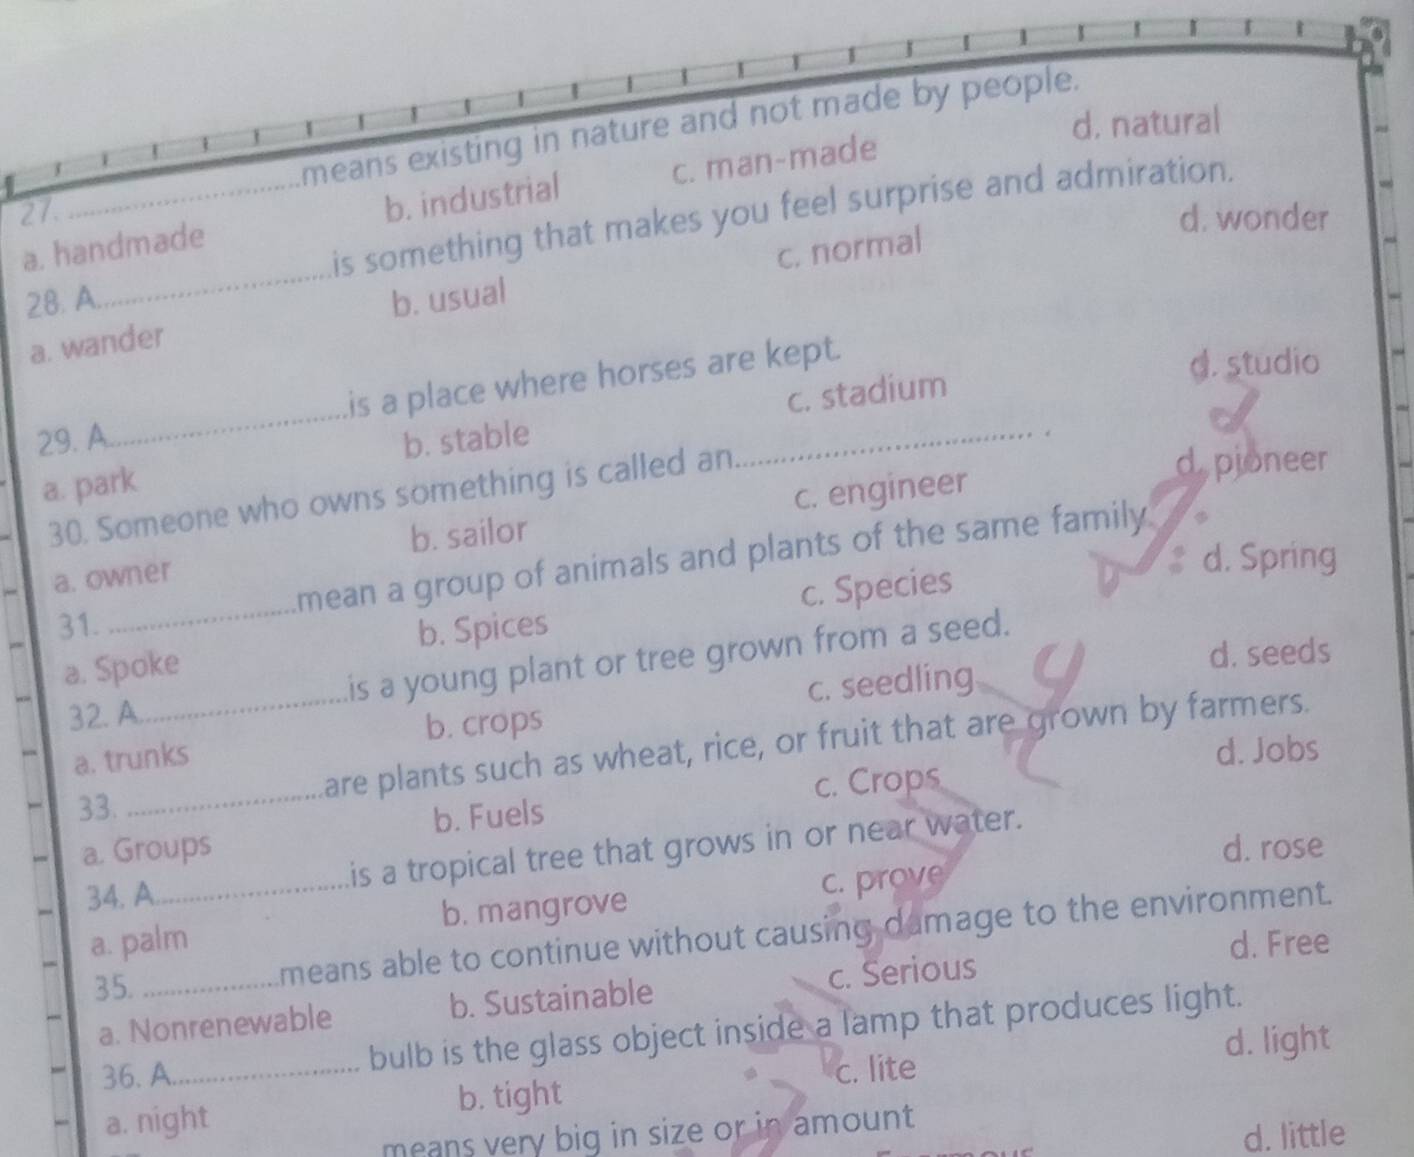 27. ....................means existing in nature and not made by people.
a. handmade b. industrial c. man-made d. natural
28. A....................is something that makes you feel surprise and admiration.
a. wander b. usual c. normal d. wonder
29. A....................is a place where horses are kept.
a. park b. stable c. stadium d. studio
30. Someone who owns something is called an.................... .
a. owner b. sailor c. engineer d. pioneer
31. ....................mean a group of animals and plants of the same family.
a. Spoke b. Spices c. Species d. Spring
32. A....................is a young plant or tree grown from a seed.
a. trunks b. crops c. seedling d. seeds
33. ....................are plants such as wheat, rice, or fruit that are grown by farmers.
a. Groups b. Fuels c. Crops d. Jobs
34. A....................is a tropical tree that grows in or near water.
a. palm b. mangrove c. prove d. rose
35. ....................means able to continue without causing damage to the environment.
a. Nonrenewable b. Sustainable c. Serious d. Free
36. A.................... bulb is the glass object inside a lamp that produces light.
a. night b. tight c. lite d. light
means very big in size or in amount
d. little